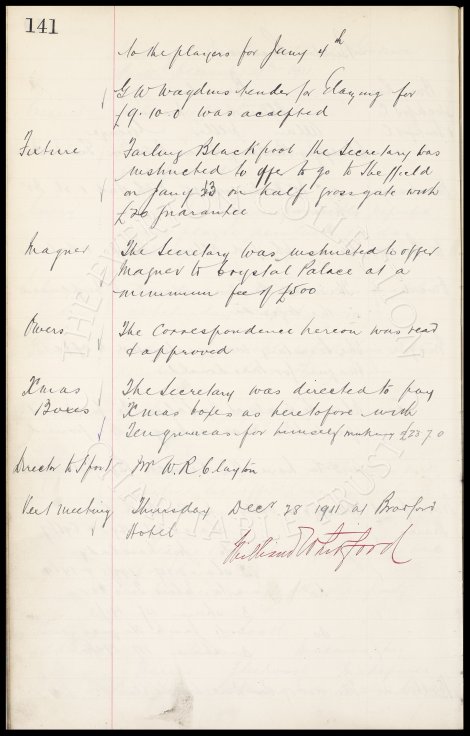 141
to the players for Jany 4th
G W Wagdins tender for Glazing for
£9.10.0 was accepted
Fixture Failing Blackpool the Secretary was
instructed to offer to go to Sheffield
on Jany 13 on half gross gate with
£20 guarantee
Magner The Secretary was instructed to offer
Magner to Crystal Palace at a
minimum fee of £500
Owers The Correspondence hereon was read
& approved
Xmas The Secretary was directed to pay
Boxes Xmas boxes as heretofore with
Ten guineas for himself making £23 7 0
Director to Sport Mr W. R. Clayton
Next meeting Thursday Decr 28 1911 at Bradford
Hotel
William Whitford
THE EVERTON COLLECTION
CHARITABLE TRUST